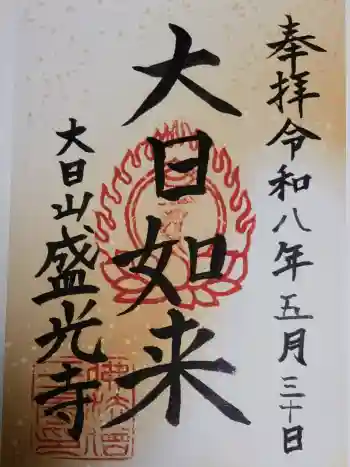 奉拝令和八年五月三十日
大日如来
大日山盛光寺